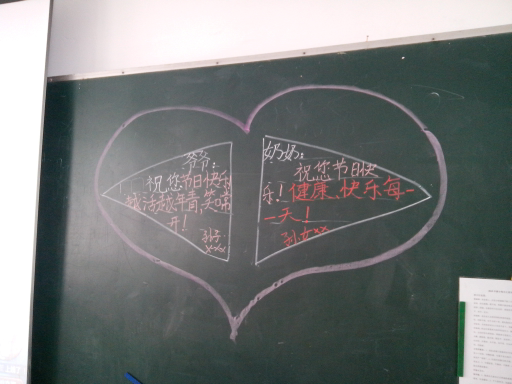 爷爷:
祝您节日快乐
越活越年青,笑口常
开!
孙子
xxx
奶奶:
祝您节日快
乐!健康、快乐每一
一天!
孙女xx